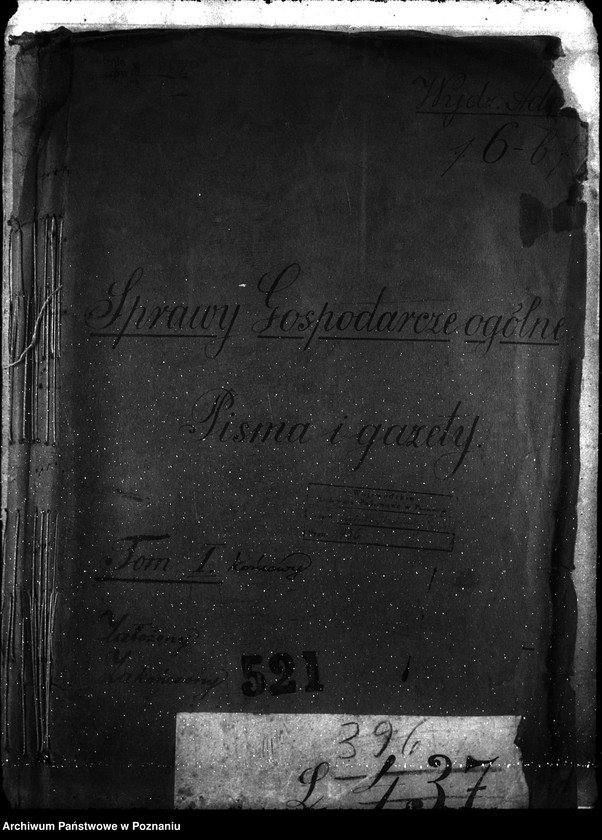 Wydz.
Sprawy Gospodarcze ogólne
Pisma i gazety.
Tom I. końcowy
Założony
Zakończony
521
396
437
Archiwum Państwowe w Poznaniu